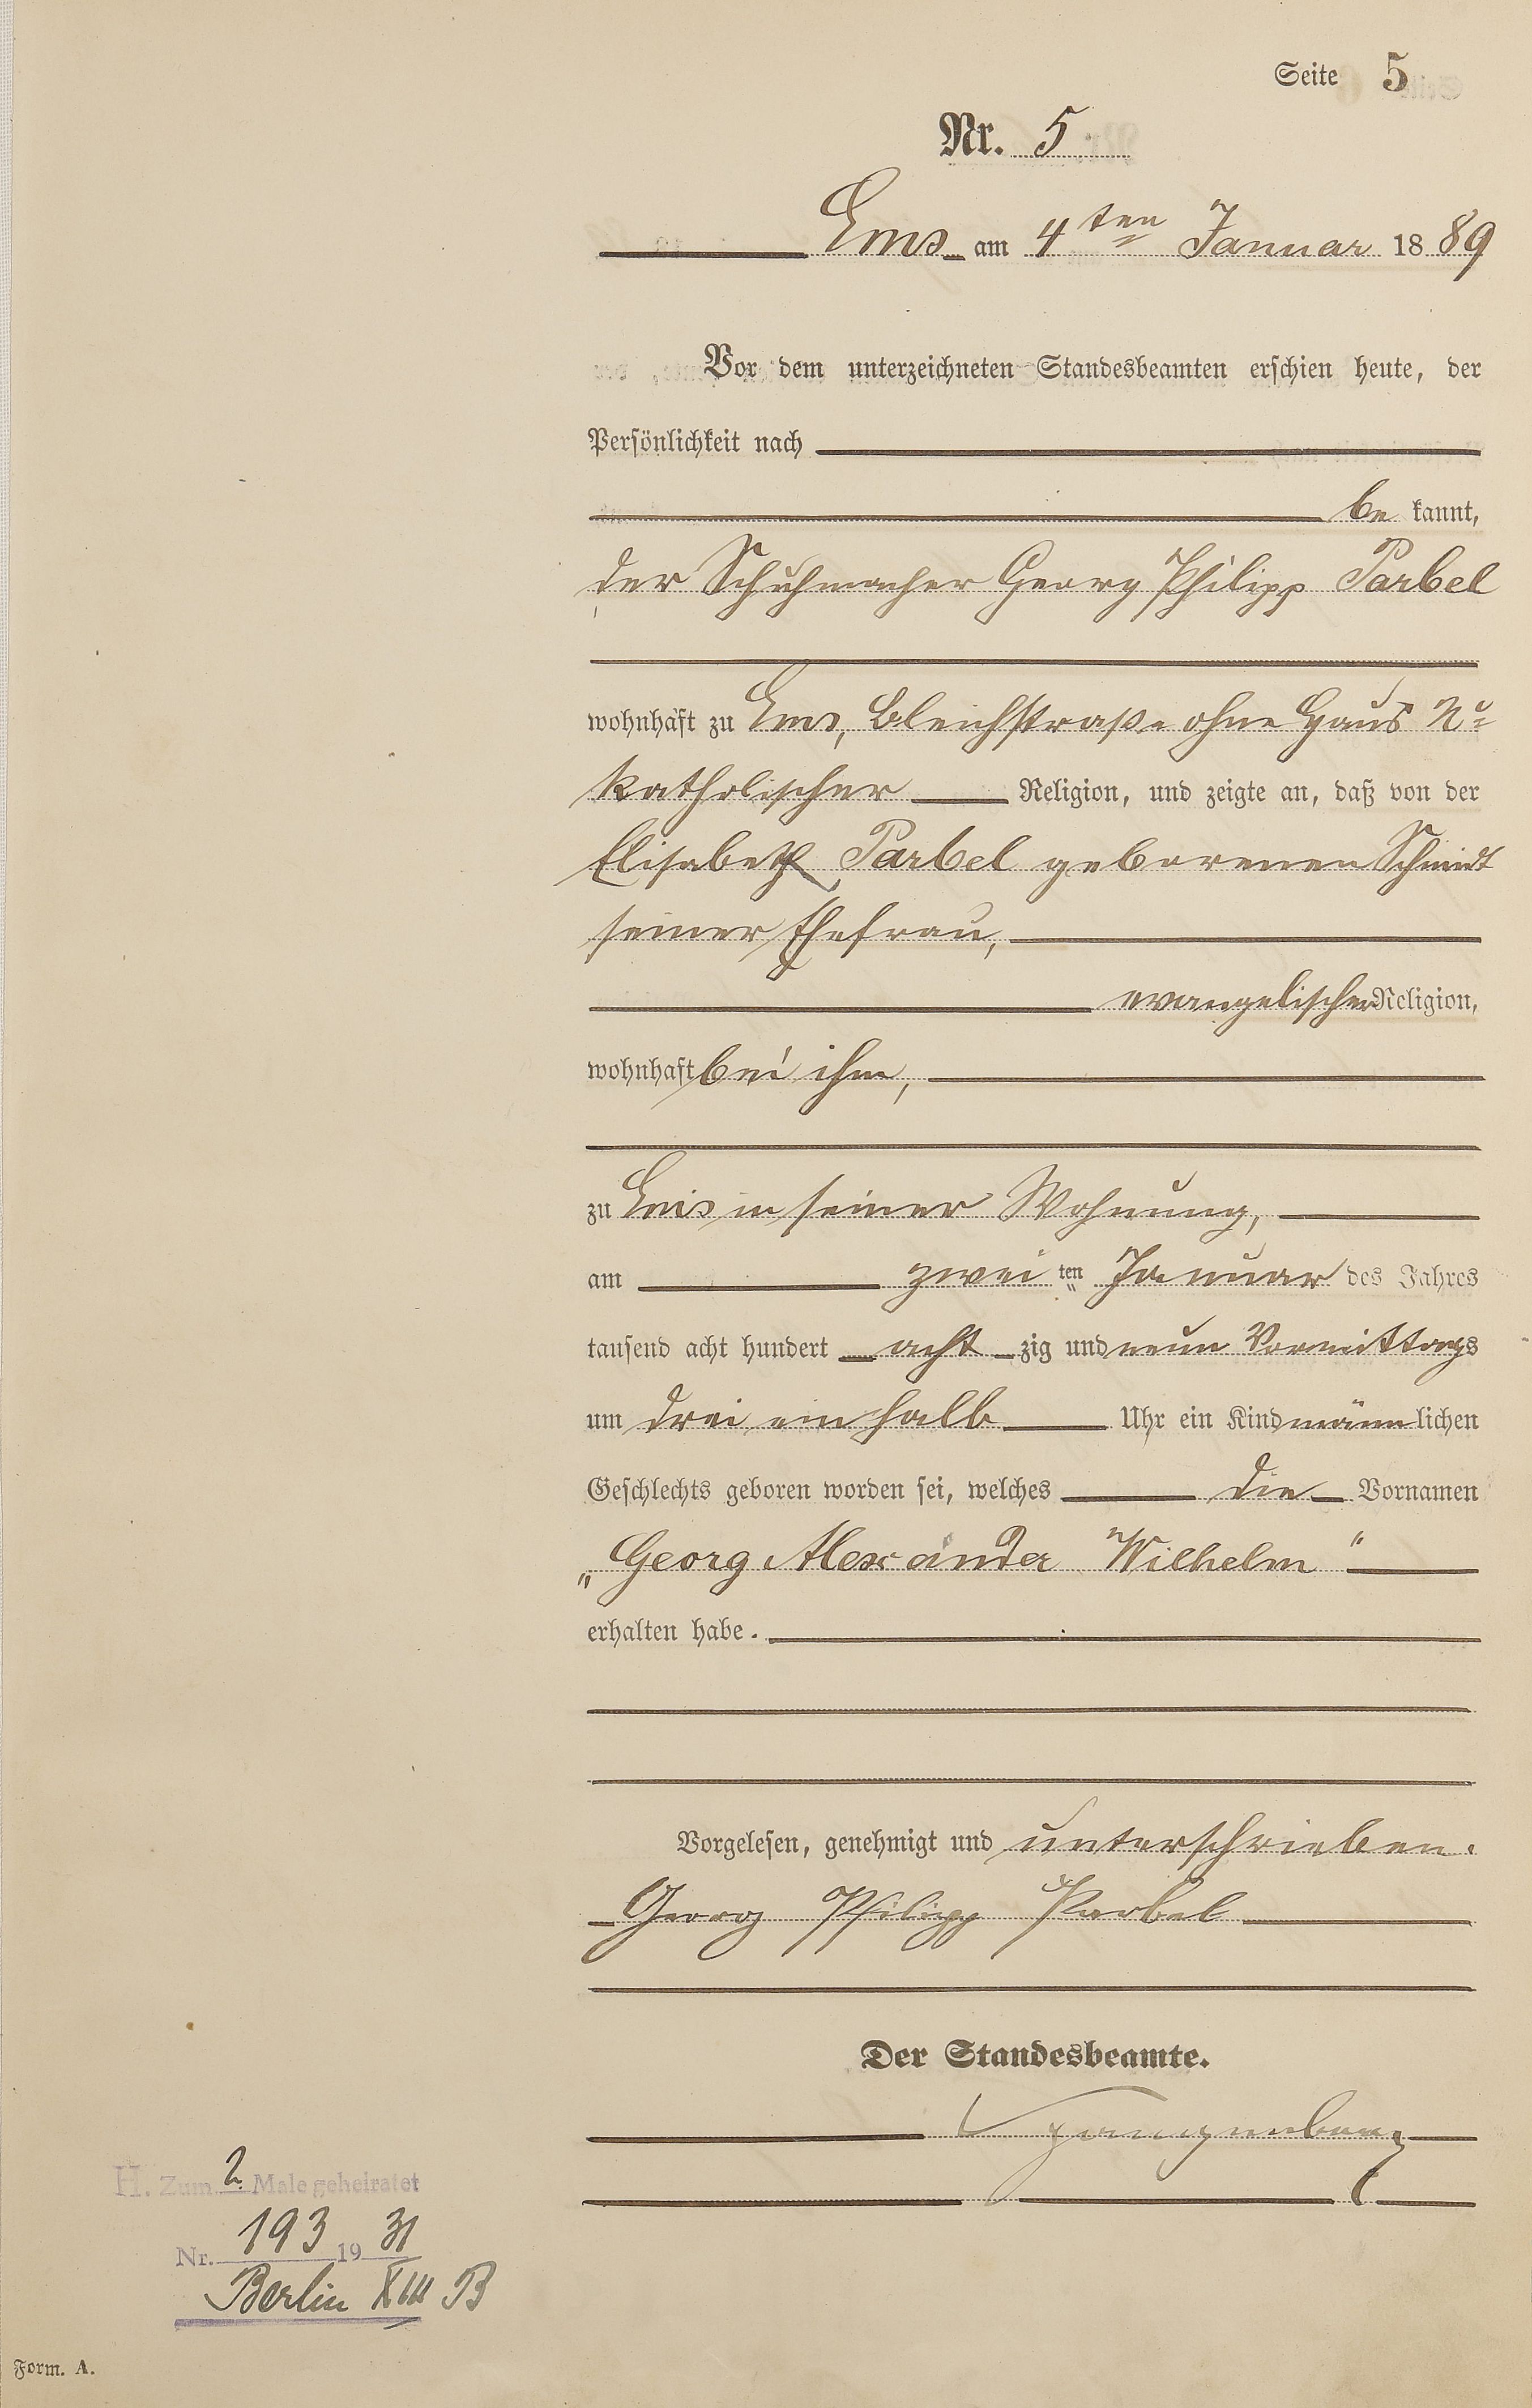 Seite 5
Nr. 5
Ems am 4ten Januar 1889
Vor dem unterzeichneten Standesbeamten erschien heute, der
Persönlichkeit nach
be kannt,
der Schuhmacher Georg Philipp Parbel
wohnhaft zu Ems, Bleichstraße ohne Haus No
katholischer Religion, und zeigte an, daß von der
Elisabeth Parbel geborenen Schmidt
seiner Ehefrau,
evangelischer Religion,
wohnhaft bei ihm,
zu Ems in seiner Wohnung,
am zwei ten Januar des Jahres
tausend acht hundert acht zig und neun Vormittags
um drei ein halb Uhr ein Kind männlichen
Geschlechts geboren worden sei, welches die Vornamen
„Georg Alexander Wilhelm"
erhalten habe.
Vorgelesen, genehmigt und unterschrieben.
Georg Philipp Parbel
Der Standesbeamte.
H. Zum 2. Male geheiratet
Nr. 193 1931
Berlin XIII B
Form. A.